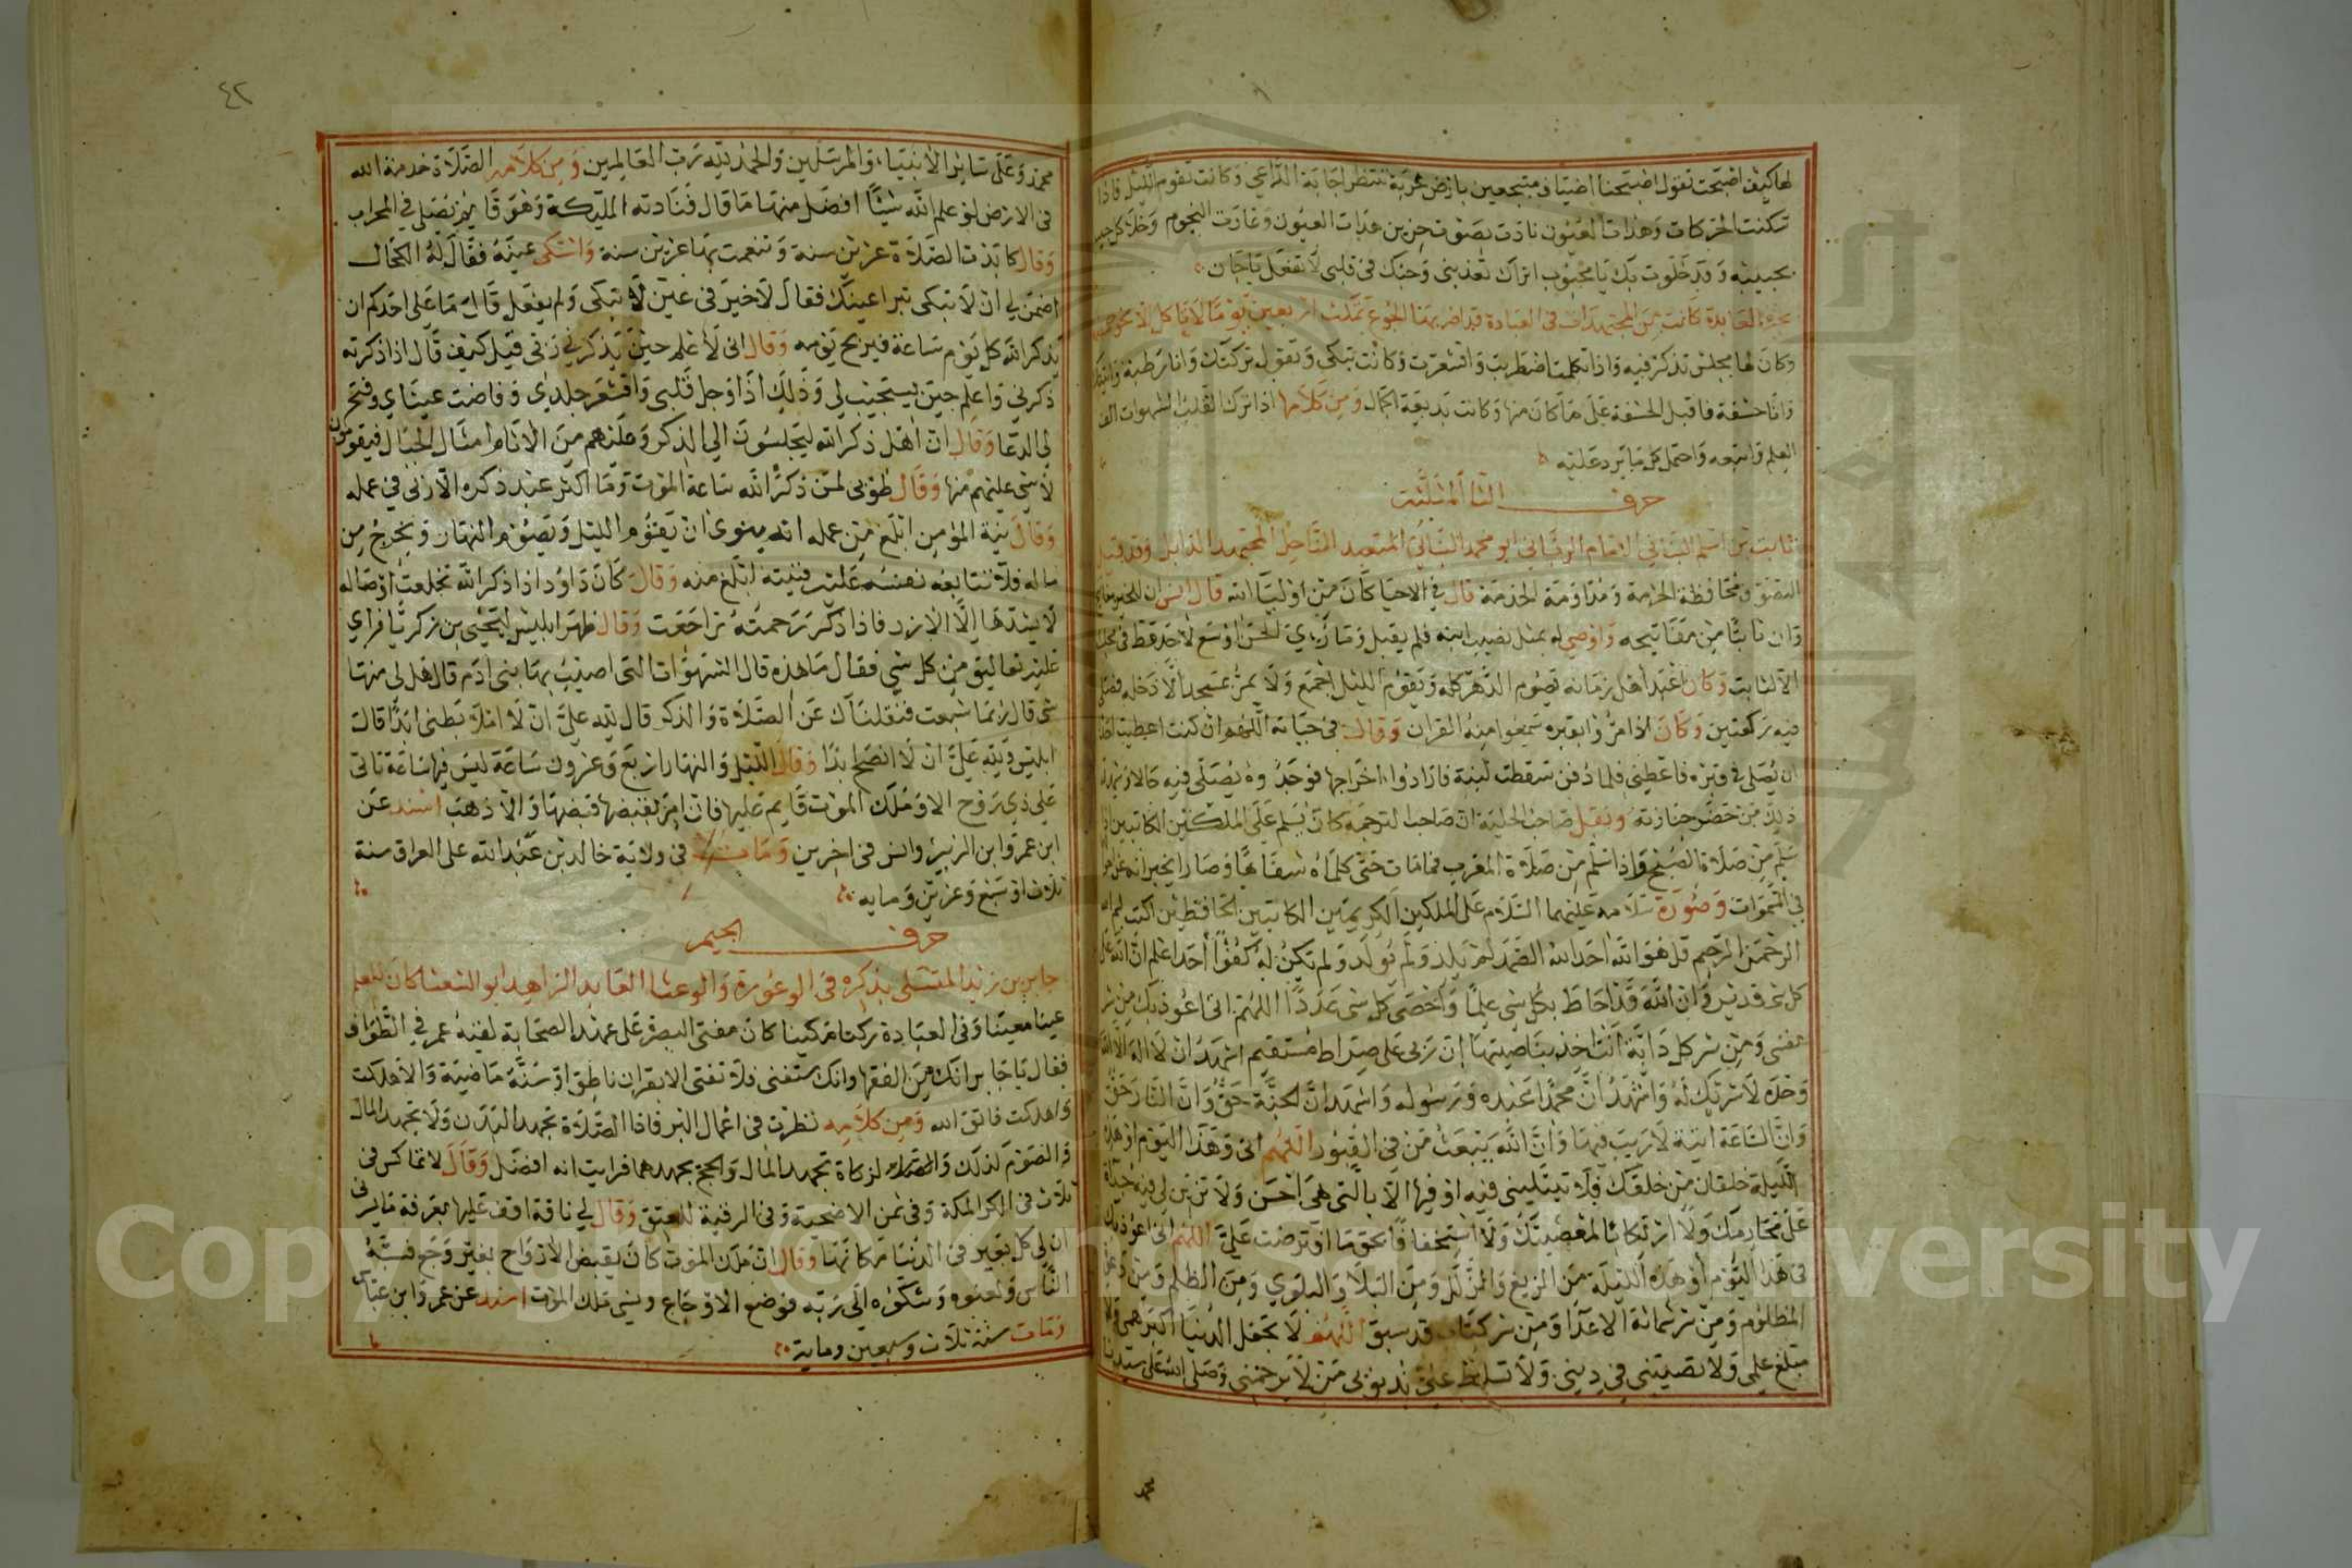 لها كيف اصبحت تقول اصبحنا اضياف منتجعين بارض غربة ننتظر اجابة الداعي وكانت تقوم الليل فاذا
سكنت الحركات وهدات العيون نادت بصوت حزين هدات العيون وغارت النجوم وخلا كل حبيب
بحبيبه وقد خلوت بك يا محبوب اتراك تعذبني وحبك في قلبي لا تفعل يا
العابدة كانت من المجتهدات في العبادة قد اضر بها الجوع مكثت اربعين يوما لا تاكل
وكان لها مجلس تذكر فيه واذا تكلمت اضطربت واقشعرت وكانت تبكي وتقول تركتك وانا رطبة
وانا حشفة فاقبل الحشفة على ما كان منها وكانت بديعة الجمال ومن كلامها اذا ترك القلب الشهوات الف
العلم واتبعه واحتمل كل ما يرد عليه
حرف الثا المثلثة
ثابت بن اسلم البناني الامام الرباني ابو محمد البناني المتعبد الناحل المجتهد الذابل وقد قيل
التصوف محافظة الحرمة ومداومة الخدمة قال في الاحيا كان من اوليا الله قال انس ان للخير مفاتيح
وان ثابتا من مفاتيحه واوصي له بمثل نصيب ابنه فلم يقبل
وكان اعبد اهل زمانه يصوم الدهر كله ويقوم الليل اجمع ولا يمر بمسجد الا دخله فصلى
فيه ركعتين وكان اذا مروا بقبره سمعوا منه القران وقال في حياته اللهم ان كنت اعطيت احدا
ان يصلي في قبره فاعطني فلما دفن سقطت لبنة فارادوا اخراجها فوجدوه يصلي فيه
ذلك من حضر جنازته ونقل صاحب الحلية ان صاحب الترجمة كان يسلم على الملكين الكاتبين اذا
سلم من صلاة الصبح واذا سلم من صلاة المغرب فما مات حتى كلماه شفاها وصارا يخبرانه
في السموات وصورة سلامه عليهما السلام على الملكين الكريمين الكاتبين الحافظين اكتبا بسم الله
الرحمن الرحيم قل هو الله احد الله الصمد لم يلد ولم يولد ولم يكن له كفوا احد اعلم ان الله على
كل شي قدير وان الله قد احاط بكل شي علما واحصى كل شي عددا اللهم اني اعوذ بك من شر
نفسي ومن شر كل دابة انت اخذ بناصيتها ان ربي على صراط مستقيم اشهد ان لا اله الا الله
وحده لا شريك له واشهد ان محمدا عبده ورسوله واشهد ان الجنة حق وان النار حق
وان الساعة اتية لا ريب فيها وان الله يبعث من في القبور اللهم اني وهذا اليوم او هذه
الليلة خلقان من خلقك فلا تبتليني فيه او فيها الا بالتي هي احسن ولا تزين لي فيه
على محارمك ولا ارتكابا لمعصيتك ولا استخفافا بحق ما افترضت علي اللهم اني اعوذ بك
في هذا اليوم او هذه الليلة من الزيغ والزلل ومن البلا والبلوي ومن الظلم ومن
المظلوم ومن شر شماتة الاعدا ومن شر كتاب قد سبق اللهم لا تجعل الدنيا اكبر همي ولا
مبلغ علمي ولا تصيبني في ديني ولا تسلط علي بذنوبي من لا يرحمني وصلى الله على سيدنا
٤٢
محمد وعلى سائر الانبياء والمرسلين والحمد لله رب العالمين ومن كلامه الصلاة خدمة الله
في الارض لو علم الله شيئا افضل منها ما قال فنادته الملئكة وهو قايم يصلي في المحراب
وقال كابدت الصلاة عشرين سنة وتنعمت بها عشرين سنة واشتكى عينه فقال له الكحال
اضمن لي ان لا تبكى تبرا عينك فقال لا خير في عين لا تبكى ولم يفعل قال ما على احدكم ان
يذكر الله كل يوم ساعة فيربح يومه وقال اني لا علم حين يذكرني ربي قيل كيف قال اذا ذكرته
ذكرني واعلم حين يستجيب لي وذلك اذا وجل قلبي واقشعر جلدي وفاضت عيناي وفتح
لي الدعا وقال ان اهل ذكر الله ليجلسون الى الذكر وعليهم من الاثام امثال الجبال فيقومون
لا شي عليهم منها وقال طوبى لمن ذكر الله ساعة الموت وما اكثر عبد ذكره الا رئي في عمله
وقال نية المؤمن ابلغ من عمله انه ينوى ان يقوم الليل ويصوم النهار ويخرج من
ماله فلا تتابعه نفسه على فنيته ابلغ منه وقال كان داود اذا ذكر الله تخلعت اوصاله
لا يشدها الا الازر فاذا ذكر رحمته تراجعت وقال ظهر ابليس ليحيى بن زكريا فراي
عليه تعاليق من كل شي فقال ما هذه قال الشهوات التى اصيب بها بني ادم قال هل لي منها
شي قال ربما شبعت فثقلناك عن الصلاة والذكر قال لله علي ان لا املا بطني ابدا قال
ابليس ولله علي ان لا انصح ابدا وقال الليل والنهار اربع وعشرون ساعة ليس فيها ساعة تاتى
على ذي روح الا وملك الموت قايم عليها فان امر بقبضها قبضها والا ذهب اسند عن
ابن عمر وابن الزبير وانس في اخرين ومات في ولاية خالد بن عبد الله على العراق سنة
ثلاث او سبع وعشرين ومايه
حرف الجيم
جابر بن زيد المتسلى بذكره في الوعورة والوعثا العابد الزاهد ابو الشعثا كان للعلم
عينا معينا وفي العبادة ركنا مكينا كان مفتي البصرة على عهد الصحابة لقيه عمر في الطواف
فقال يا جابر انك من الفقها وانك ستفتى فلا تفتى الا بقران ناطق او سنة ماضية والا هلكت
واهلكت فاتق الله ومن كلامه نظرت في اعمال البر فاذا الصلاة تجهد البدن ولا تجهد المال
والصوم كذلك والزكاة تجهد المال والحج يجهدهما فرايت انه افضل وقال لا تماكس في
ثلاث في الكرا لمكة وفي ثمن الاضحية وفي الرقبة للعتق وقال لي ناقة اقف عليها بعرفة ما يسرني
ان لي كل بعير في الدنيا مكانها وقال ان ملك الموت كان يقبض الارواح بغير وجع فسبه
الناس ولعنوه وشكوه الى ربه فوضع الاوجاع ونسي ملك الموت اسند عن عمر وابن عباس
ومات سنة ثلاث وسبعين وماية
Copyright © King Saud University